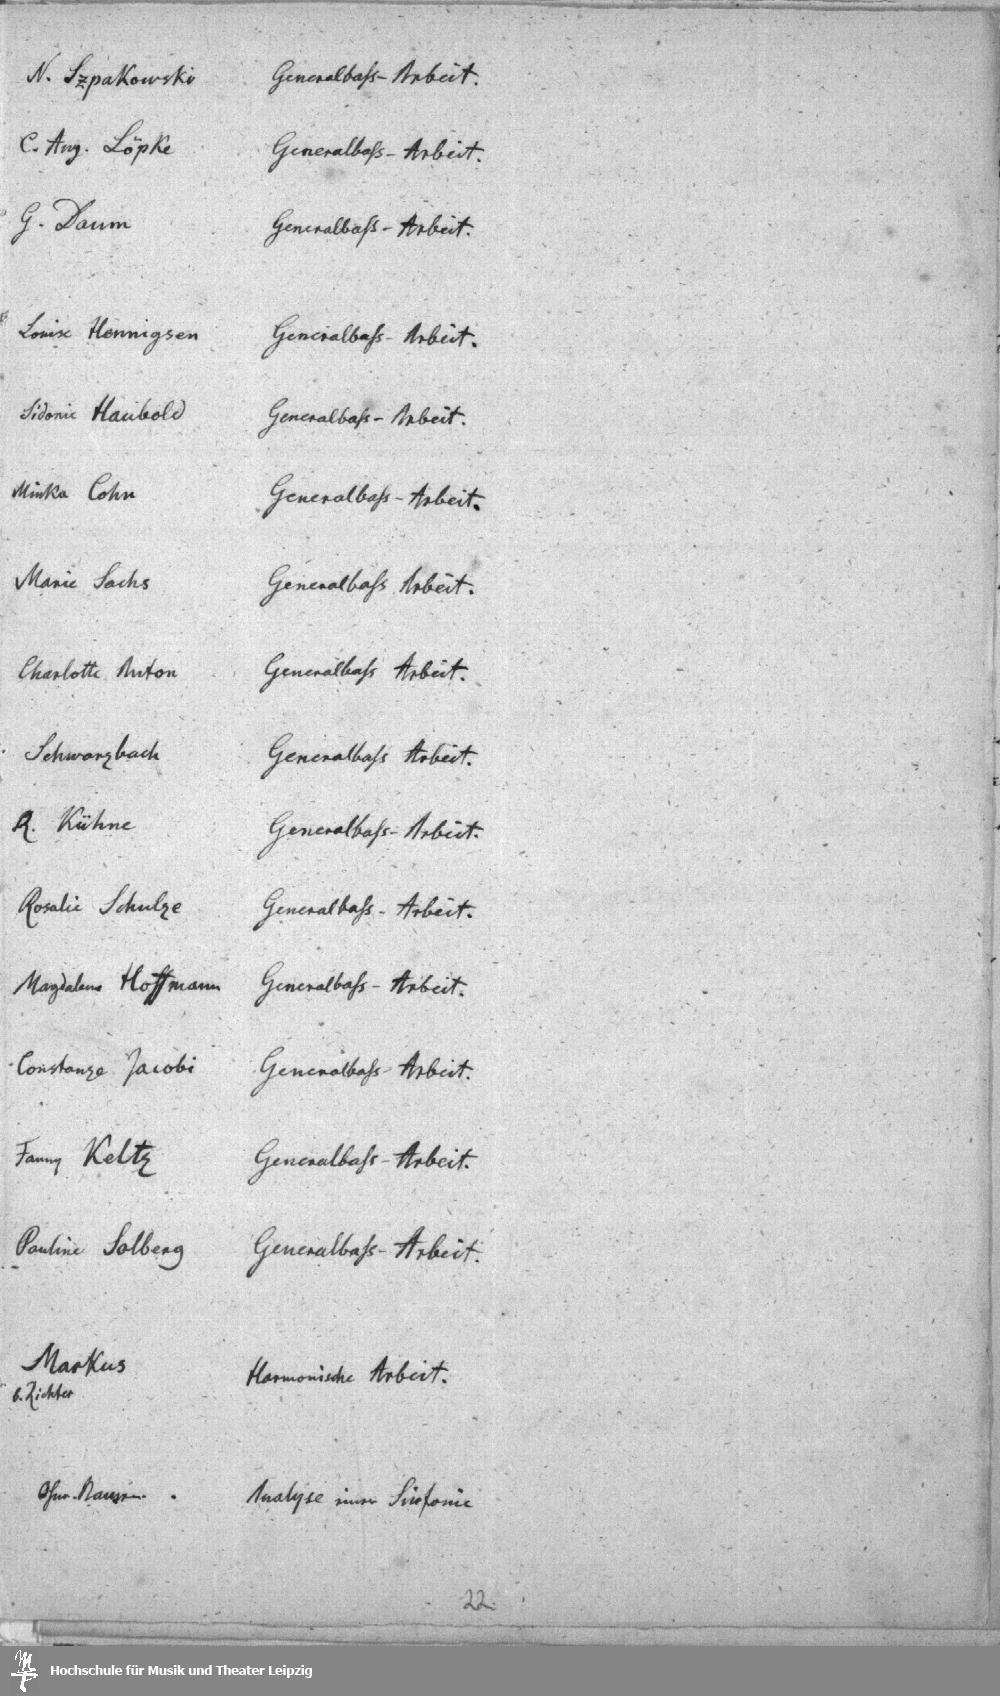 N. Szpakowski Generalbaſs-Arbeit.
C. Aug. Löpke Generalbaſs-Arbeit.
G. Daum Generalbaſs-Arbeit.
Louise Hennigsen Generalbaſs-Arbeit.
Sidonie Haubold Generalbaſs-Arbeit.
Minka Cohn Generalbaſs-Arbeit.
Marie Sachs Generalbaſs Arbeit.
Charlotte Anton Generalbaſs Arbeit.
Schwarzbach Generalbaſs Arbeit.
R. Kühne Generalbaſs-Arbeit.
Rosalie Schulze Generalbaſs-Arbeit.
Magdalena Hoffmann Generalbaſs-Arbeit.
Constanze Jacobi Generalbaſs-Arbeit.
Fanny Keltz Generalbaſs-Arbeit.
Pauline Solberg Generalbaſs-Arbeit.
Markus Harmonische Arbeit.
b. Richter
Analyse einer Sinfonie
22.
Hochschule für Musik und Theater Leipzig